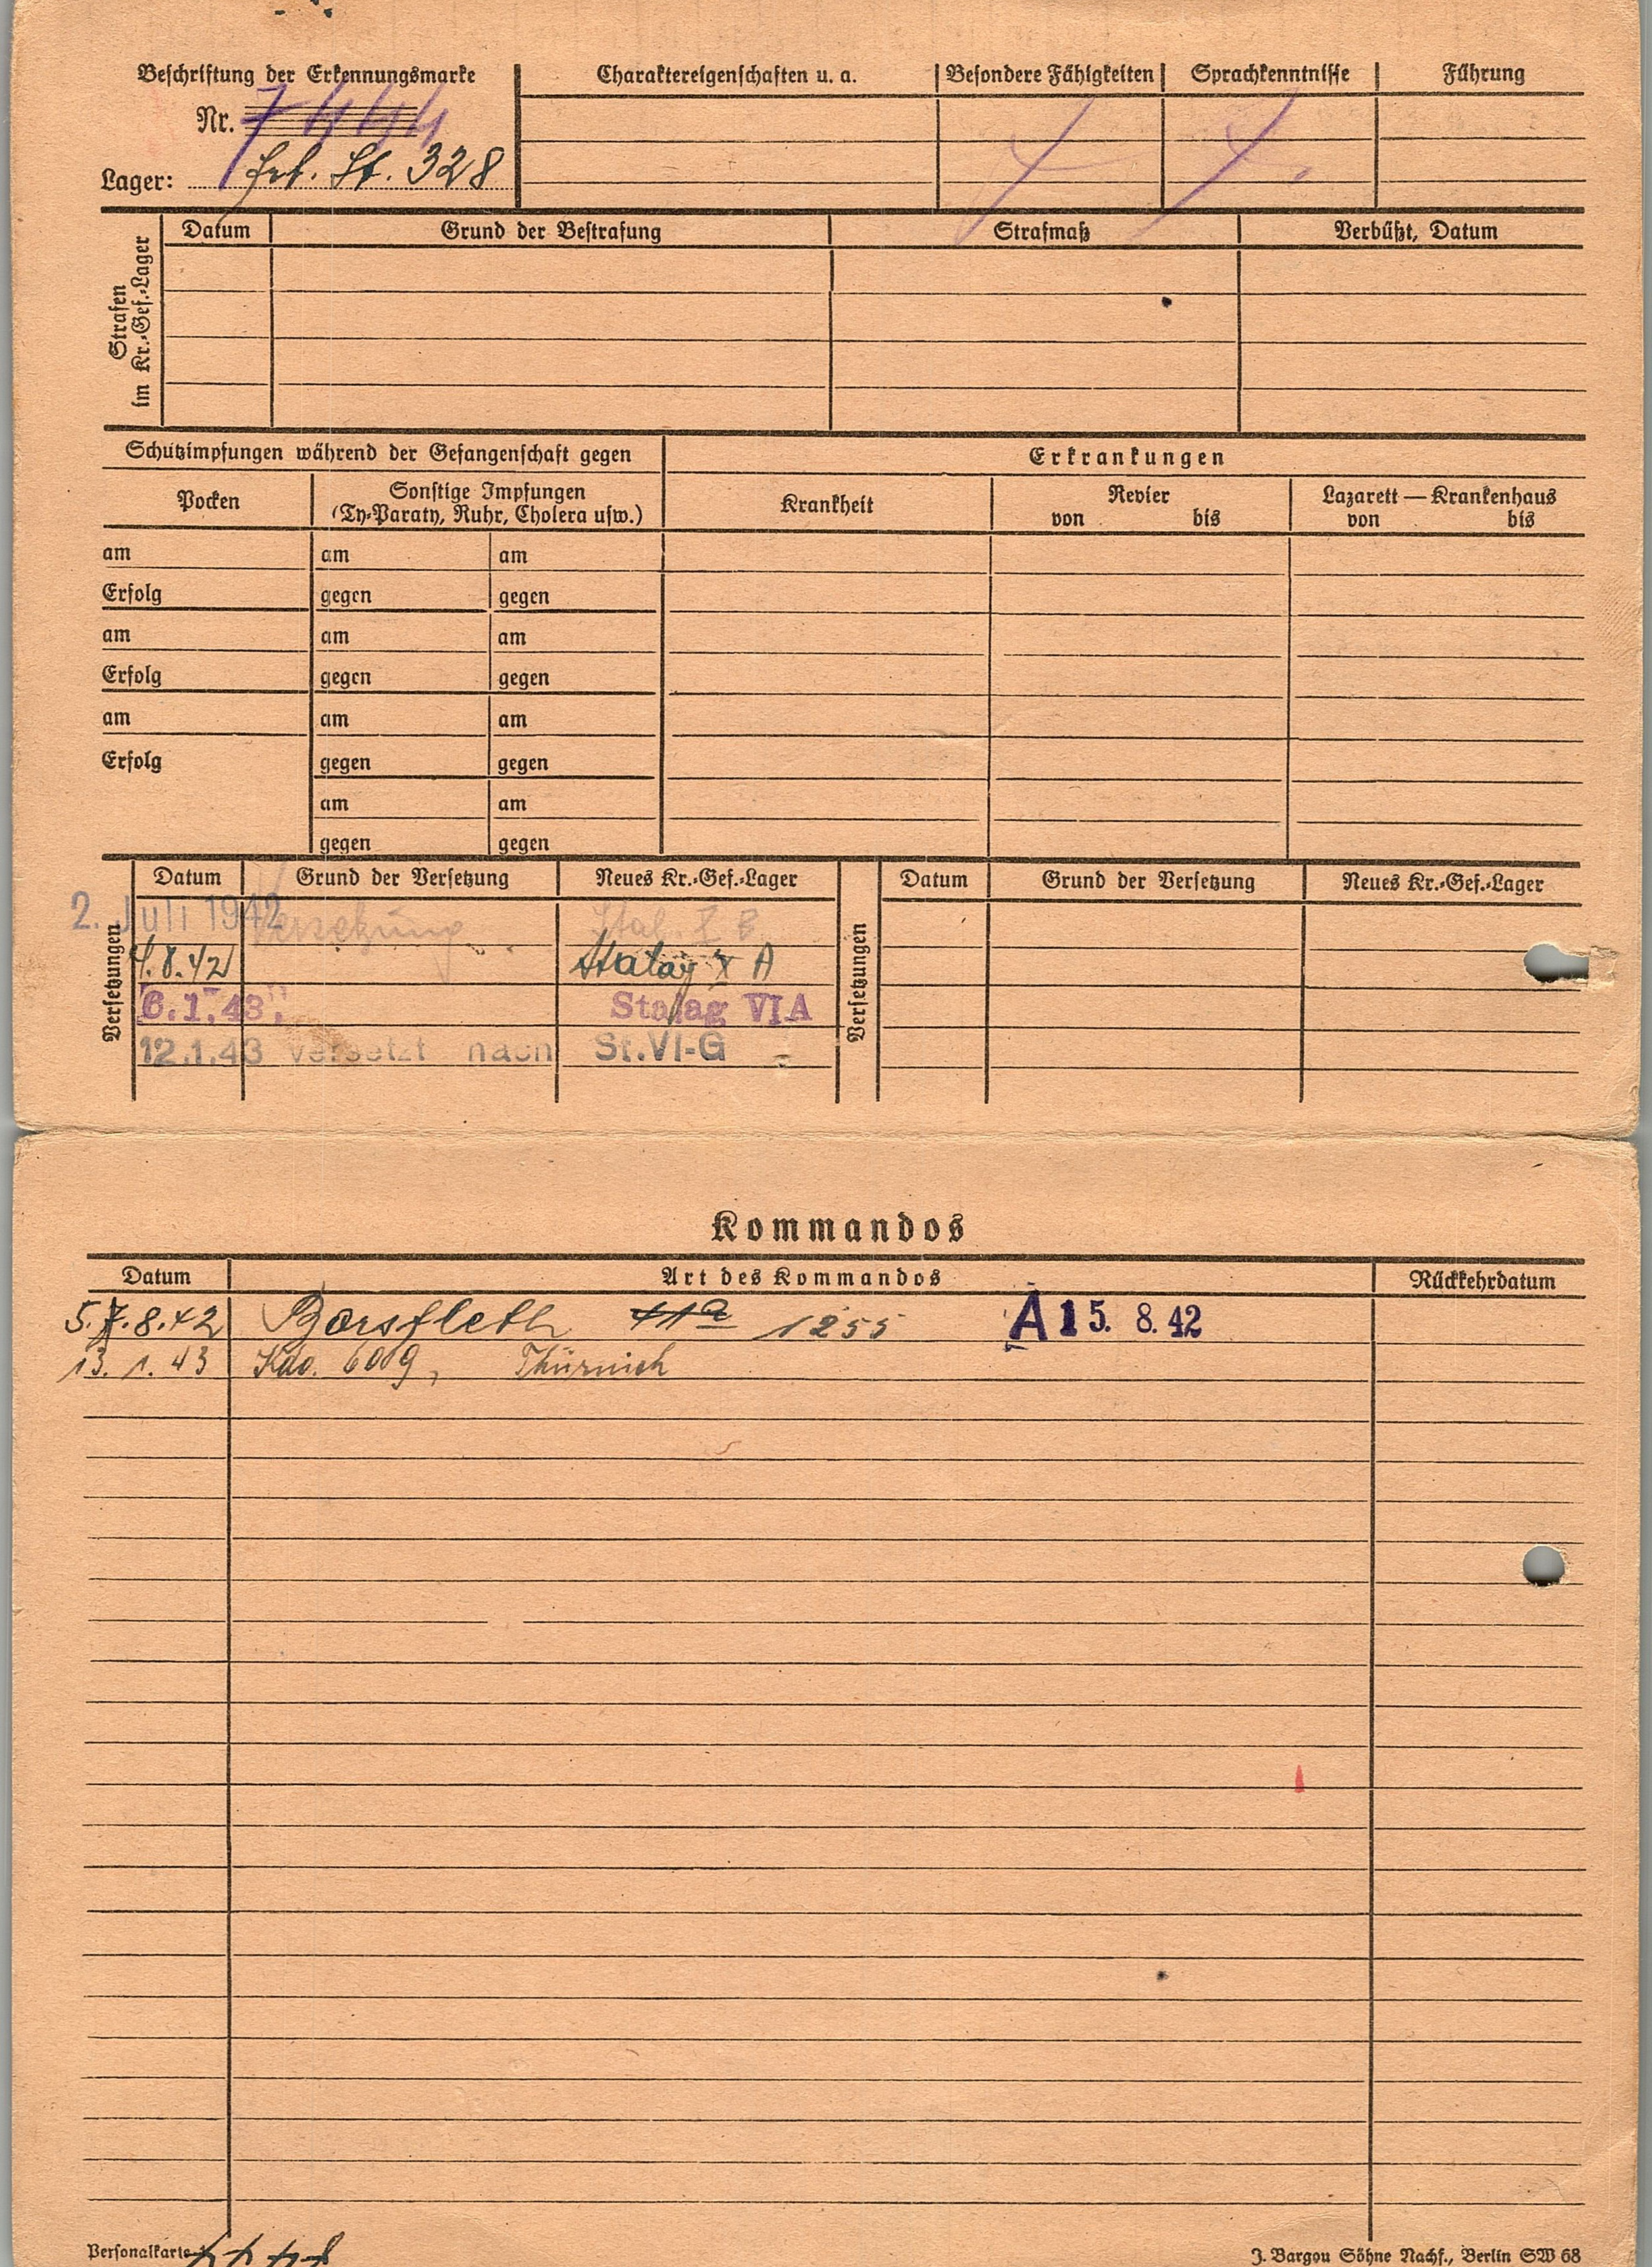 Beschriftung der Erkennungsmarke
Nr. 7444
Lager: St. 328
Charaktereigenschaften u. a.
Besondere Fähigkeiten
Sprachkenntnisse
Führung
Strafen im Kr.-Gef.-Lager
Datum
Grund der Bestrafung
Strafmaß
Verbüßt, Datum
Schutzimpfungen während der Gefangenschaft gegen
Erkrankungen
Pocken
Sonstige Impfungen
(Ty-Paraty, Ruhr, Cholera usw.)
Krankheit
Revier
von bis
Lazarett — Krankenhaus
von bis
am am am
Erfolg gegen gegen
am am am
Erfolg gegen gegen
am am am
Erfolg gegen gegen
am am
gegen gegen
Versetzungen
Datum Grund der Versetzung Neues Kr.-Gef.-Lager
2. Juli 1942 Versetzung Stal.
4.8.42 Stalag X A
6.1.43. Stalag VI A
12.1.43 versetzt nach St.VI-G
Versetzungen
Datum Grund der Versetzung Neues Kr.-Gef.-Lager
Kommandos
Datum Art des Kommandos Rückkehrdatum
5.7.8.42 Borsfleth 11a 1255 A 15. 8. 42
13. 1. 43 Kdo. 609, Thürnich
Personalkarte
J. Bargou Söhne Nachf., Berlin SW 68